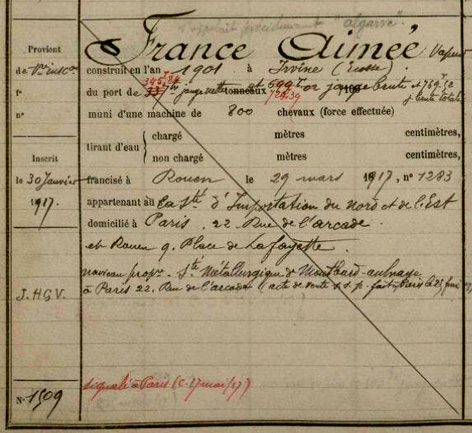 s'appelait précédemment "algarve".
France Aimée Vapeur
Provient
de 1re insc.on
construit en l'an 1901 à Irvine (Ecosse)
345,34
f°
du port de tx jauge nette tonneaux et 699 T. 02 jauge brute et 769.52
729.39 j. brute totale
n°
muni d'une machine de 800 chevaux (force effectuée)
tirant d'eau { chargé mètres centimètres,
non chargé mètres centimètres,
Inscrit
le 30 Janvier
1917.
francisé à Rouen le 29 mars 1917, n° 1283
appartenant au La Sté d'Importation du Nord et de l'Est
domicilié à Paris. 22 Rue de l'arcade
et Rouen 9. Place de Lafayette.
nouveau propre Sté Métallurgique de Montbard-aulnoye
à Paris 22. Rue de l'arcade (acte de vente s.s.p. fait à Paris le 25
J.H.G.V.
signalé à Paris (C. 17 mai/17)
N° 1509